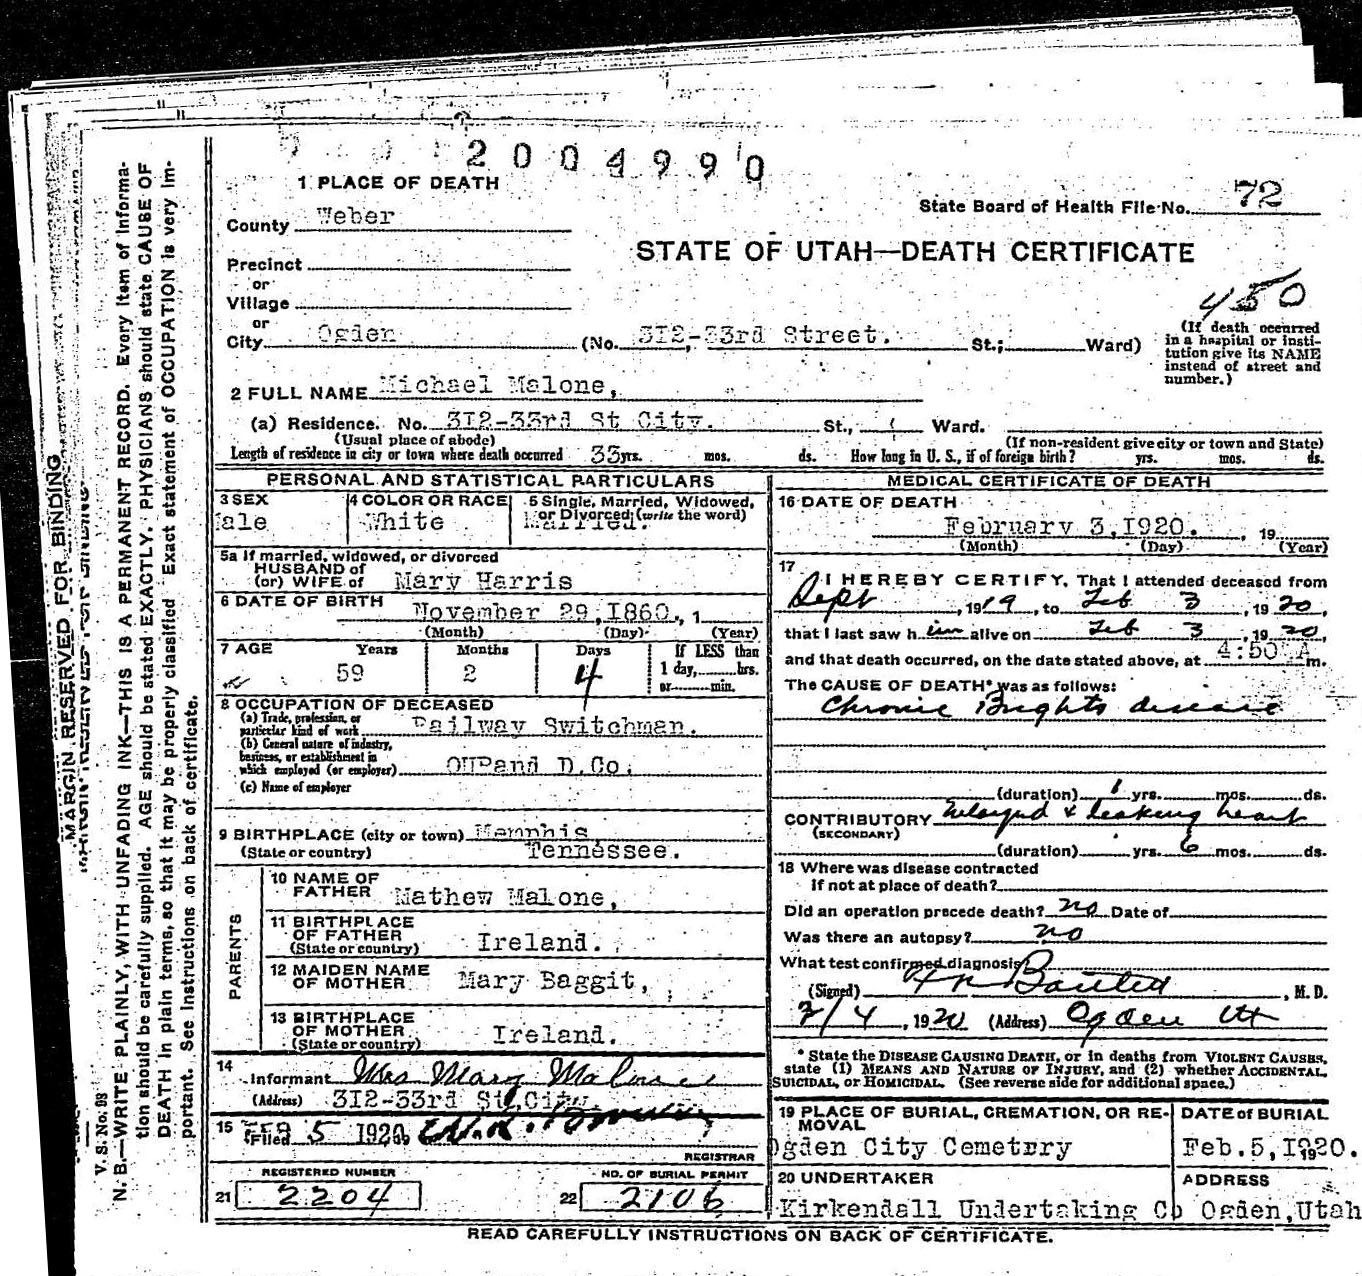 2004990
1 PLACE OF DEATH
State Board of Health File No. 72
County Weber
STATE OF UTAH—DEATH CERTIFICATE
Precinct
or
Village
450
or
City Ogden (No. 3I2-33rd Street. St.; Ward)
(If death occurred
in a hospital or insti-
tution give its NAME
instead of street and
number.)
2 FULL NAME Michael Malone,
(a) Residence. No. 3I2-33rd St City. St., Ward.
(Usual place of abode) (If non-resident give city or town and State)
Length of residence in city or town where death occurred 33 yrs. mos. ds. How long in U. S., if of foreign birth? yrs. mos. ds.
PERSONAL AND STATISTICAL PARTICULARS
3 SEX
Male
4 COLOR OR RACE
White
5 Single, Married, Widowed,
or Divorced (write the word)
Married.
5a If married, widowed, or divorced
HUSBAND of
(or) WIFE of Mary Harris
6 DATE OF BIRTH
November 29,I860., 1
(Month) (Day) (Year)
7 AGE Years Months Days If LESS than
1 day, hrs.
59 2 4 or min.
8 OCCUPATION OF DECEASED
(a) Trade, profession, or
particular kind of work Railway Switchman.
(b) General nature of industry,
business, or establishment in
which employed (or employer) OUPand D.Co.
(c) Name of employer
9 BIRTHPLACE (city or town) Memphis
(State or country) Tennessee.
PARENTS
10 NAME OF
FATHER Mathew Malone,
11 BIRTHPLACE
OF FATHER
(State or country) Ireland.
12 MAIDEN NAME
OF MOTHER Mary Baggit,
13 BIRTHPLACE
OF MOTHER
(State or country) Ireland.
14
Informant Mrs Mary Malone
(Address) 3I2-33rd St,City.
15
Filed FEB 5 1920
REGISTRAR
REGISTERED NUMBER NO. OF BURIAL PERMIT
21 2204 22 2106
MEDICAL CERTIFICATE OF DEATH
16 DATE OF DEATH
February 3,I920. , 19
(Month) (Day) (Year)
17
I HEREBY CERTIFY, That I attended deceased from
Sept , 1919 , to Feb 3 , 1920,
that I last saw h im alive on Feb 3 , 1920,
and that death occurred, on the date stated above, at 4:50 A m.
The CAUSE OF DEATH* was as follows:
Chronic Brights disease
(duration) 1 yrs. mos. ds.
CONTRIBUTORY Enlarged & leaking heart
(SECONDARY)
(duration) yrs. 6 mos. ds.
18 Where was disease contracted
if not at place of death?
Did an operation precede death? no Date of
Was there an autopsy? no
What test confirmed diagnosis?
(Signed) , M. D.
2/4 , 1920 (Address) Ogden Ut
* State the DISEASE CAUSING DEATH, or in deaths from VIOLENT CAUSES,
state (1) MEANS AND NATURE OF INJURY, and (2) whether ACCIDENTAL,
SUICIDAL, or HOMICIDAL. (See reverse side for additional space.)
19 PLACE OF BURIAL, CREMATION, OR RE-
MOVAL
Ogden City Cemetrry
DATE of BURIAL
Feb.5,I920. 19
20 UNDERTAKER
Kirkendall Undertaking Co
ADDRESS
Ogden,Utah
READ CAREFULLY INSTRUCTIONS ON BACK OF CERTIFICATE.
MARGIN RESERVED FOR BINDING
V. S. No. 98
N. B.—WRITE PLAINLY, WITH UNFADING INK—THIS IS A PERMANENT RECORD. Every item of informa-
tion should be carefully supplied. AGE should be stated EXACTLY. PHYSICIANS should state CAUSE OF
DEATH in plain terms, so that it may be properly classified. Exact statement of OCCUPATION is very im-
portant. See instructions on back of certificate.